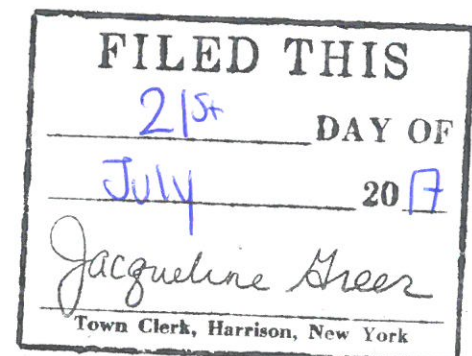 FILED THIS
21st DAY OF
July 2017
Jacqueline Greer
Town Clerk, Harrison, New York